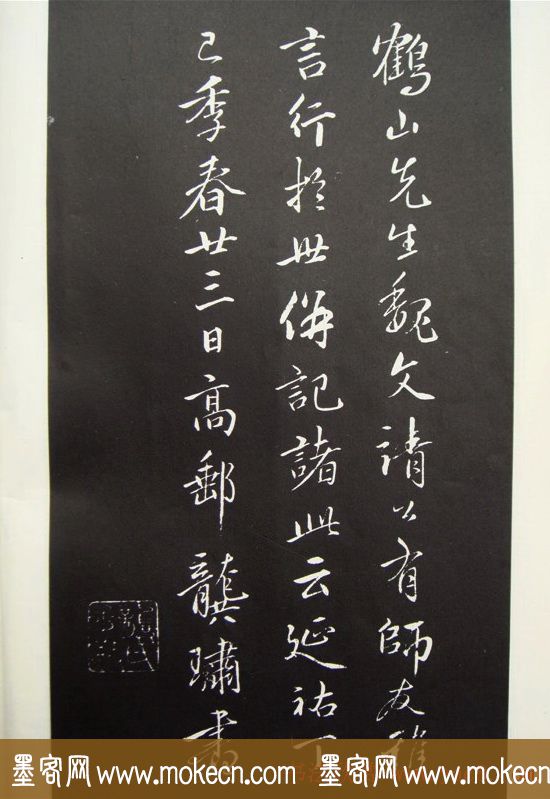 鶴山先生魏文靖公有師友雅
言行於世併記諸此云延祐丁
巳季春廿三日高郵龔璛書
墨客网 www.mokecn.com 墨客网 www.mokecn.com